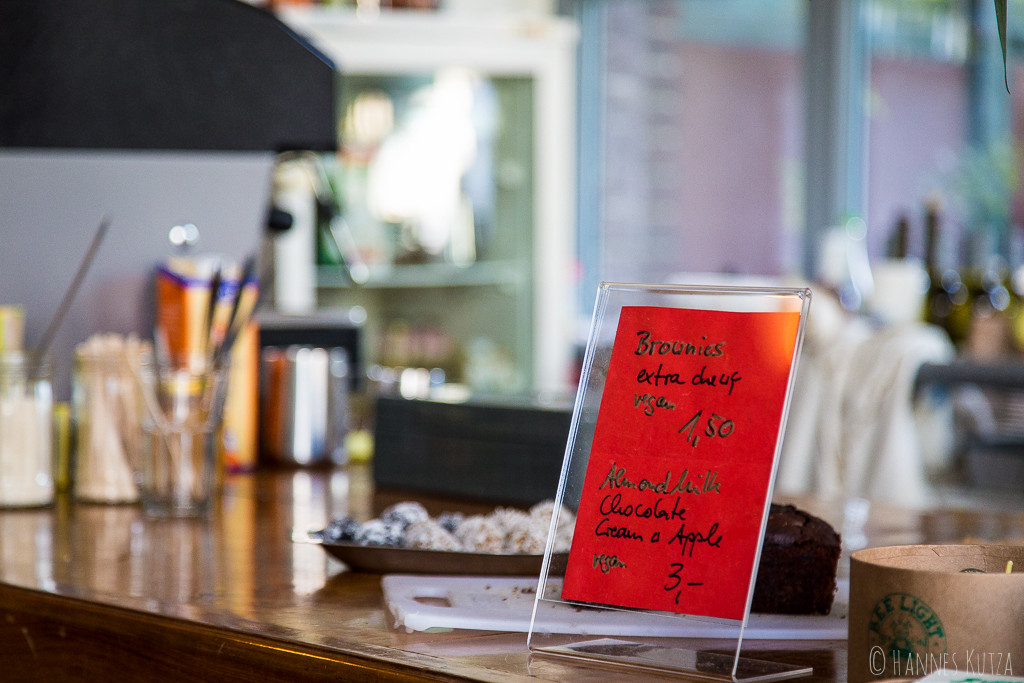 Brownies
extra chewy
vegan
1,50
Almondmilk
Chocolate
Cream & Apple
vegan
3,-
LIGHT
© HANNES KUTZA